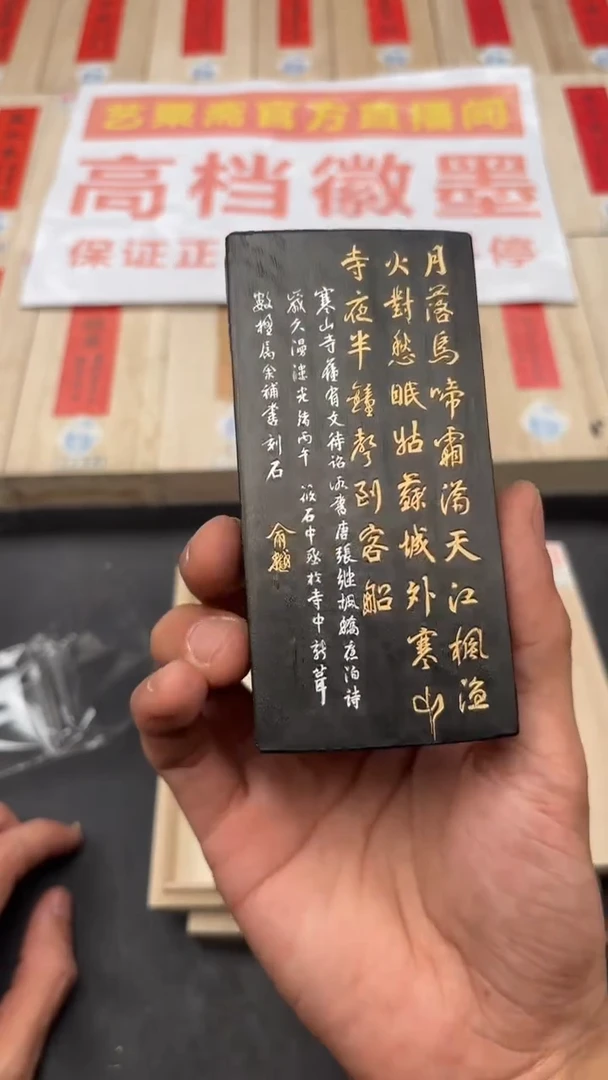 艺聚斋官方直播间
高档徽墨
保证正
停
月落烏啼霜滿天江楓漁
火對愁眠姑蘇城外寒山
寺夜半鐘聲到客船
寒山寺舊有文待詔所書唐張繼楓橋夜泊詩
歲久漫漶光緒丙午 筱石中丞於寺中新葺
數楹屬余補書刻石
俞樾